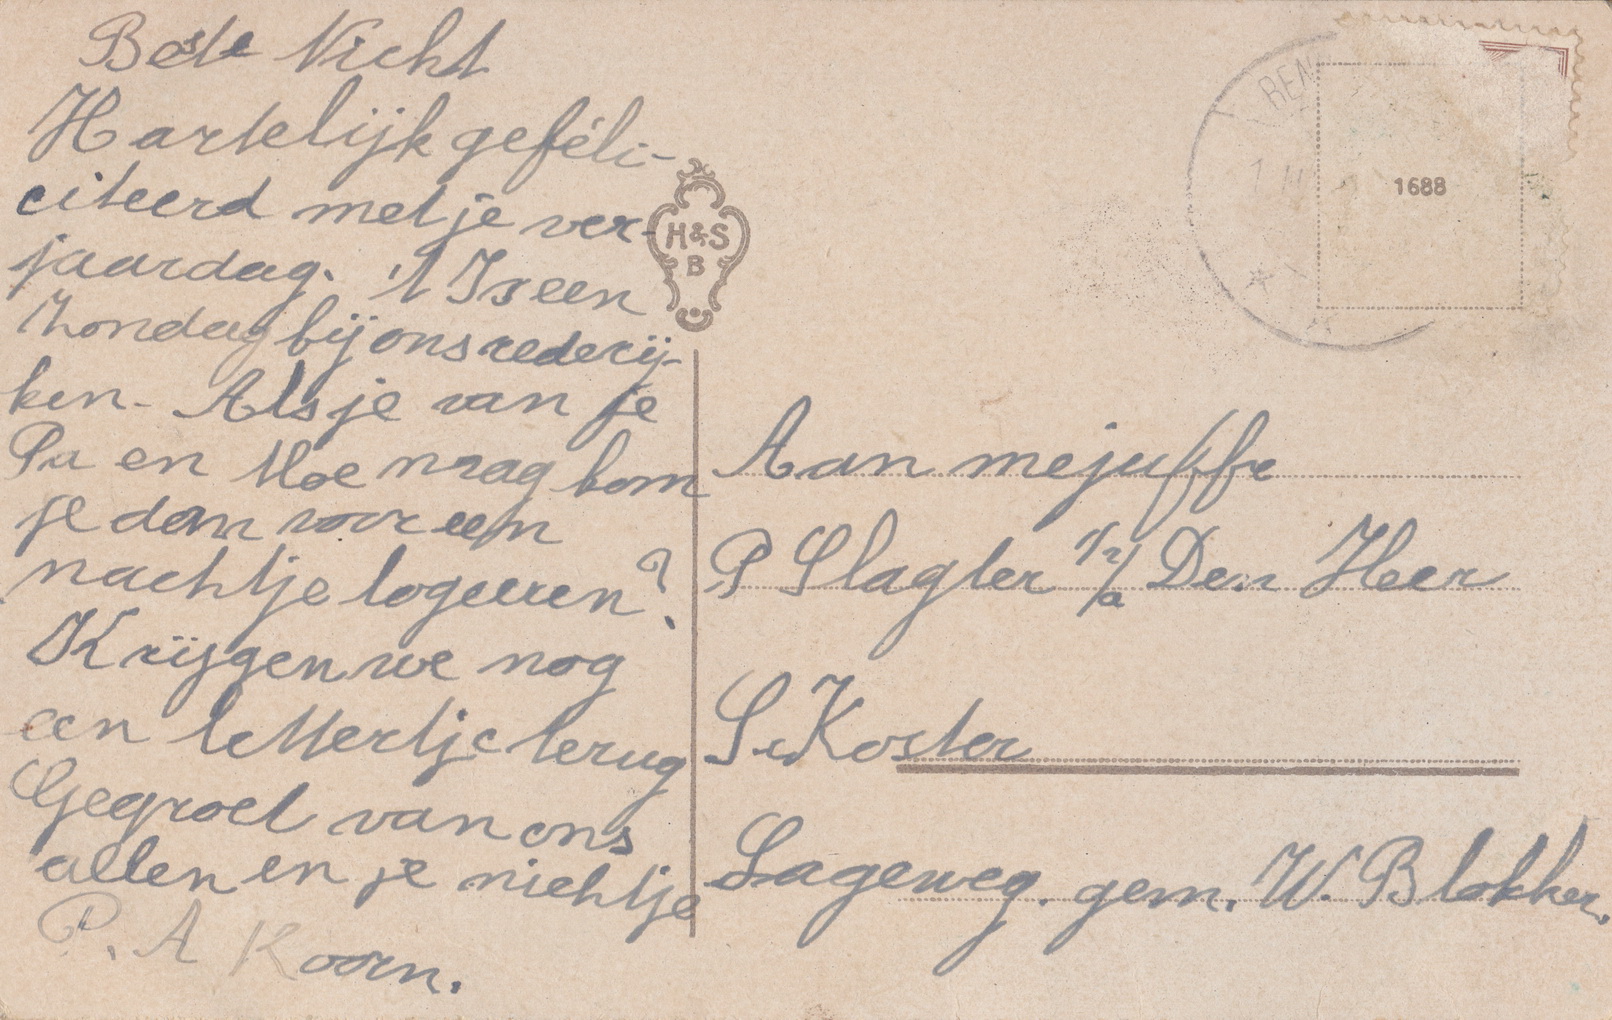 Beste Nicht
Hartelijk geféli-
citeerd met je ver-
jaardag. 't Is een
Zondag bij ons rederij-
ken. Als je van je
Pa en Moe mag kom
je dan voor een
nachtje logeeren?
Krijgen we nog
een lettertje terug
Gegroet van ons
allen en je nichtje
P. A Koorn.
H&S
B
REN
1688
Aan mejuffr
P Slagter p/a Den Heer
S. Koster
Lageweg. gem. W. Blokker.